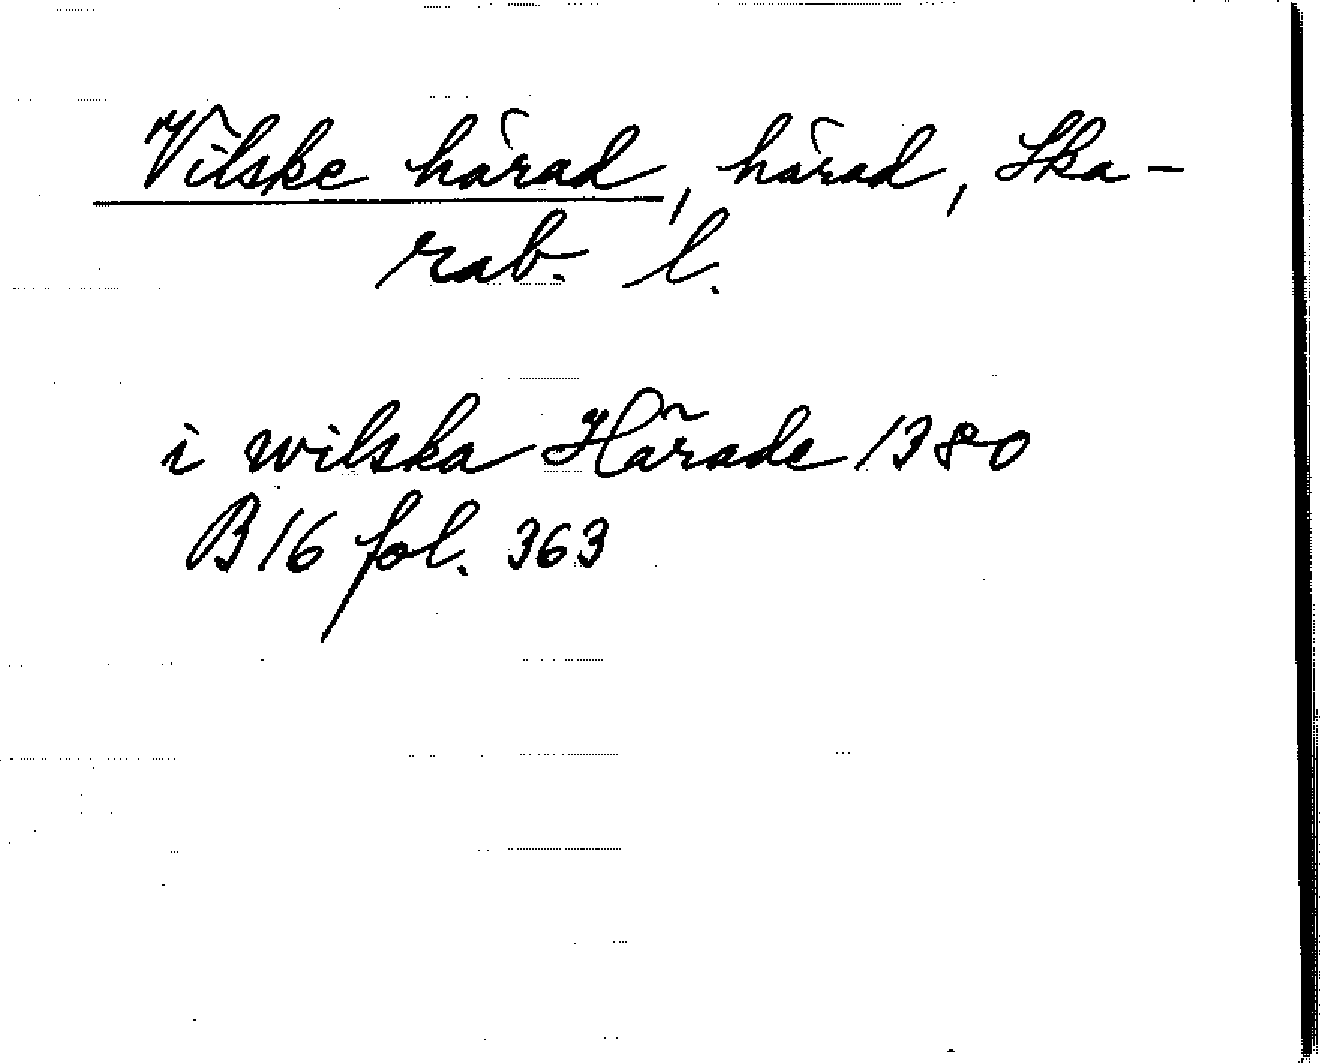 Vilske härad, härad, Ska-
rab. l.
i wilska Härade 1380
B 16 fol. 363